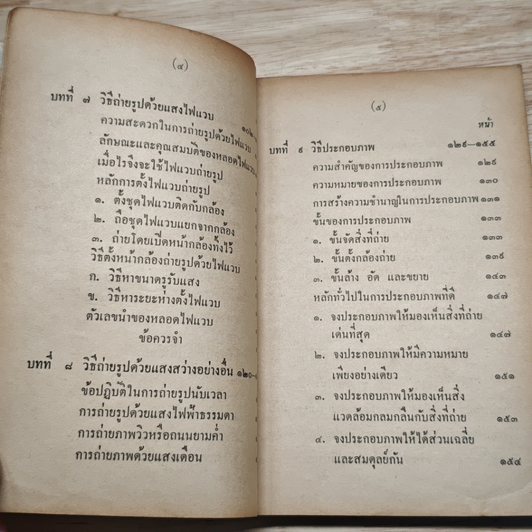 (๔)
บทที่ ๗ วิธีถ่ายรูปด้วยแสงไฟแวบ
ความสะดวกในการถ่ายรูปด้วยไฟแวบ
ลักษณะและคุณสมบัติของหลอดไฟแวบ
เมื่อไรจึงจะใช้ไฟแวบถ่ายรูป
หลักการตั้งไฟแวบถ่ายรูป
๑. ตั้งชุดไฟแวบติดกับกล้อง
๒. ถือชุดไฟแวบแยกจากกล้อง
๓. ถ่ายโดยเปิดหน้ากล้องทิ้งไว้
วิธีตั้งหน้ากล้องถ่ายรูปด้วยไฟแวบ
ก. วิธีหาขนาดรูรับแสง
ข. วิธีหาระยะห่างตั้งไฟแวบ
ตัวเลขนำของหลอดไฟแวบ
ข้อควรจำ
บทที่ ๘ วิธีถ่ายรูปด้วยแสงสว่างอย่างอื่น ๑๒๐
ข้อปฏิบัติในการถ่ายรูปนับเวลา
การถ่ายรูปด้วยแสงไฟฟ้าธรรมดา
การถ่ายภาพวิวหรือถนนยามค่ำ
การถ่ายภาพด้วยแสงเดือน
(๕)
หน้า
บทที่ ๙ วิธีประกอบภาพ ๑๒๙—๑๕๕
ความสำคัญของการประกอบภาพ ๑๒๙
ความหมายของการประกอบภาพ ๑๓๐
การสร้างความชำนาญในการประกอบภาพ ๑๓๑
ขั้นของการประกอบภาพ ๑๓๓
๑. ขั้นจัดสิ่งที่ถ่าย ๑๓๓
๒. ขั้นตั้งกล้องถ่าย ๑๓๙
๓. ขั้นล้าง อัด และขยาย ๑๔๓
หลักทั่วไปในการประกอบภาพที่ดี ๑๔๗
๑. จงประกอบภาพให้มองเห็นสิ่งที่ถ่าย
เด่นที่สุด ๑๔๗
๒. จงประกอบภาพให้มีความหมาย
เพียงอย่างเดียว ๑๕๑
๓. จงประกอบภาพให้มองเห็นสิ่ง
แวดล้อมกลมกลืนกับสิ่งที่ถ่าย ๑๕๓
๔. จงประกอบภาพให้ได้ส่วนเฉลี่ย
และสมดุลย์กัน ๑๕๔